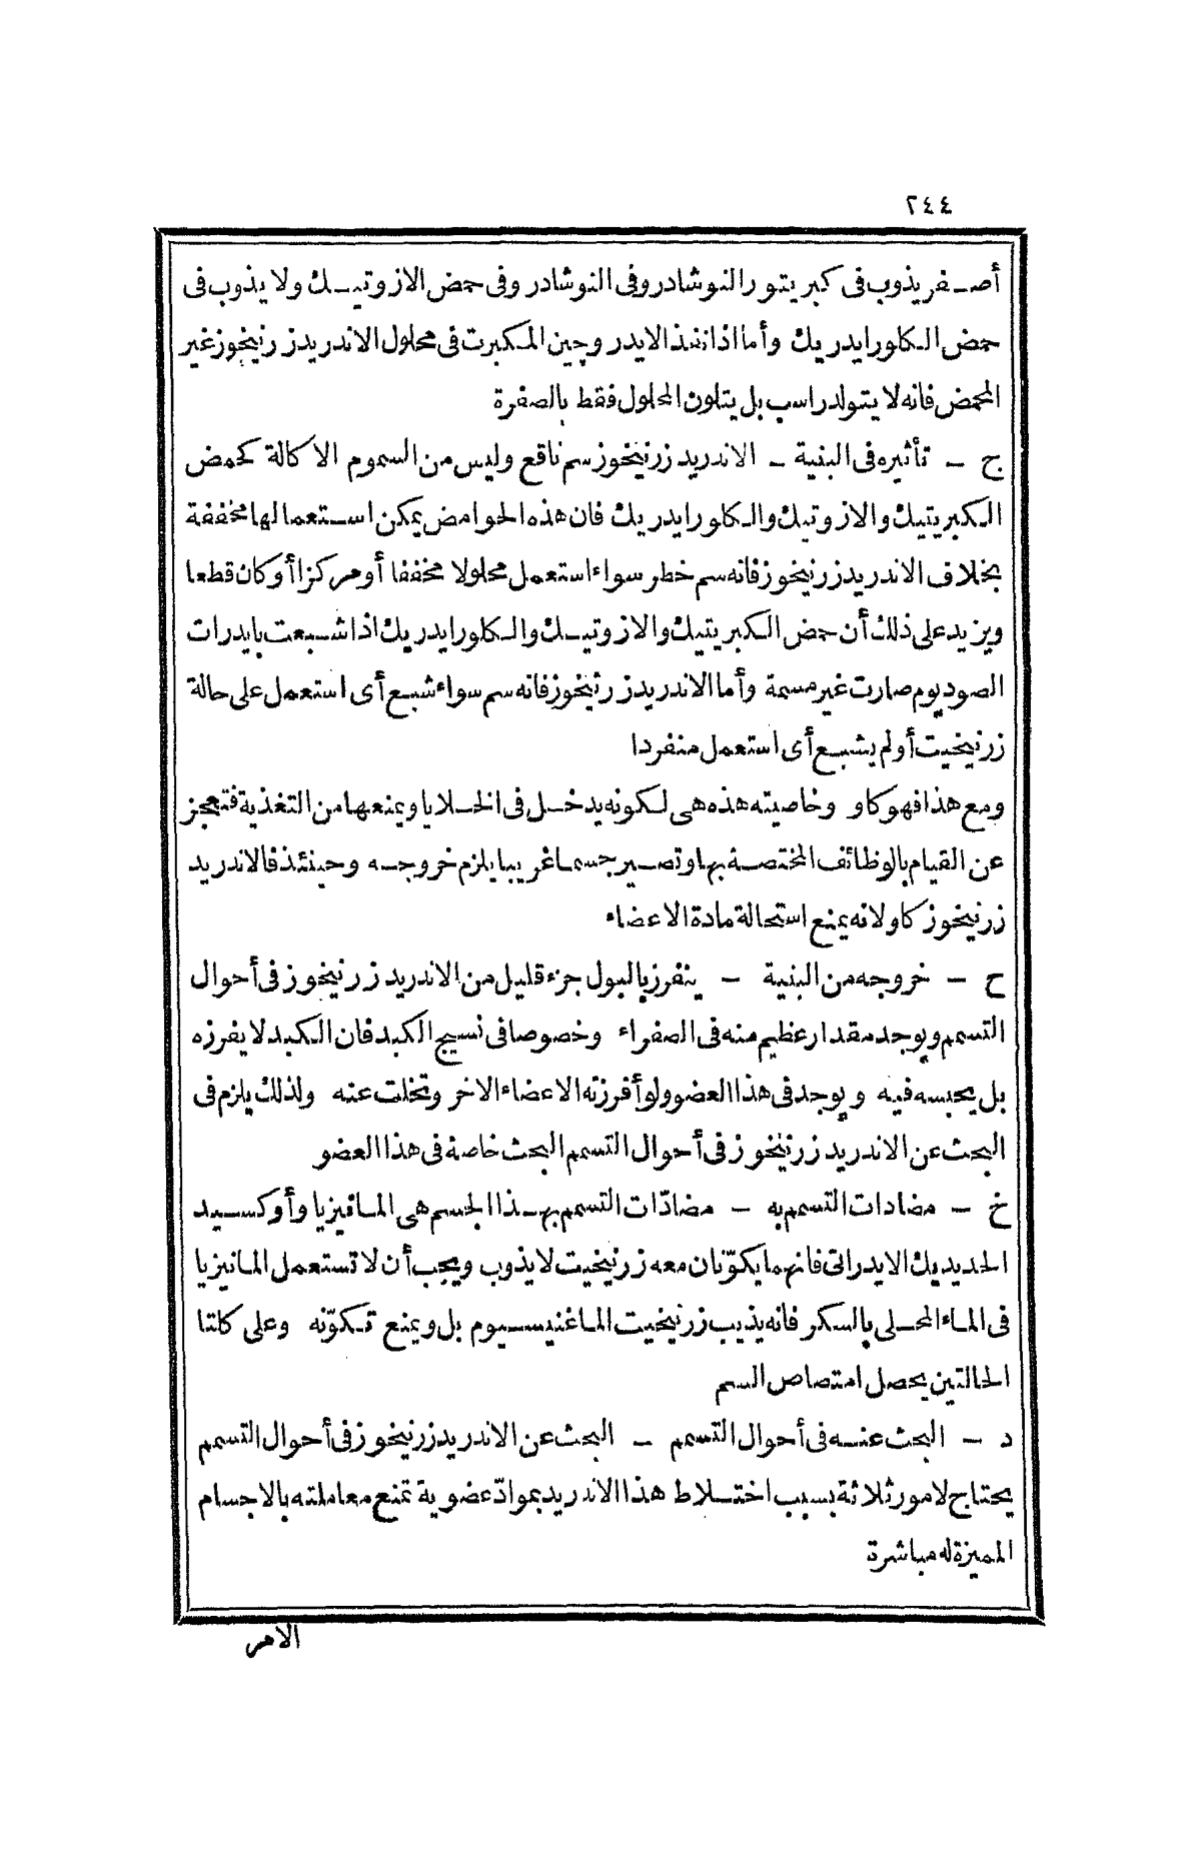 ٢٤٤
أصفر يذوب فى كبريتور النوشادر وفى النوشادر وفى حمض الازوتيك ولا يذوب فى
حمض الكلورايدريك وأما اذا نفذ الايدروجين المكبرت فى محلول الاندريد زرنيخوز غير
المحمض فانه لا يتولد راسب بل يتلون المحلول فقط بالصفرة
ج – تأثيره فى البنية – الاندريد زرنيخوز سم ناقع وليس من السموم الاكالة كحمض
الكبريتيك والازوتيك والكلورايدريك فان هذه الحوامض يمكن استعمالها مخففة
بخلاف الاندريد زرنيخوز فانه سم خطر سواء استعمل محلولا مخففا أو مركزا أو كان قطعا
ويزيد على ذلك أن حمض الكبريتيك والازوتيك والكلورايدريك اذا شبعت بايدرات
الصوديوم صارت غير مسمة وأما الاندريد زرنيخوز فانه سم سواء شبع أى استعمل على حالة
زرنيخيت أو لم يشبع أى استعمل منفردا
ومع هذا فهو كاو وخاصيته هذه هى لكونه يدخل فى الخلايا ويمنعها من التغذية فتعجز
عن القيام بالوظائف المختصة بها وتصير جسما غريبا يلزم خروجه وحينئذ فالاندريد
زرنيخوز كاو لانه يمنع استحالة مادة الاعضاء
ح – خروجه من البنية – ينفرز بالبول جزء قليل من الاندريد زرنيخوز فى أحوال
التسمم ويوجد مقدار عظيم منه فى الصفراء وخصوصا فى نسيج الكبد فان الكبد لا يفرزه
بل يحبسه فيه ويوجد فى هذا العضو ولو أفرزته الاعضاء الاخر وتخلت عنه ولذلك يلزم فى
البحث عن الاندريد زرنيخوز فى أحوال التسمم البحث خاصة فى هذا العضو
خ – مضادات التسمم به – مضادّات التسمم بهذا الجسم هى المانيزيا وأوكسيد
الحديديك الايدراتى فانهما يكوّنان معه زرنيخيت لا يذوب ويجب أن لا تستعمل المانيزيا
فى الماء المحلى بالسكر فانه يذيب زرنيخيت الماغنيسيوم بل ويمنع تكوّنه وعلى كلتا
الحالتين يحصل امتصاص السم
د – البحث عنه فى أحوال التسمم – البحث عن الاندريد زرنيخوز فى أحوال التسمم
يحتاج لامور ثلاثة بسبب اختلاط هذا الاندريد بموادّ عضوية تمنع معاملته بالاجسام
المميزة له مباشرة
الامر